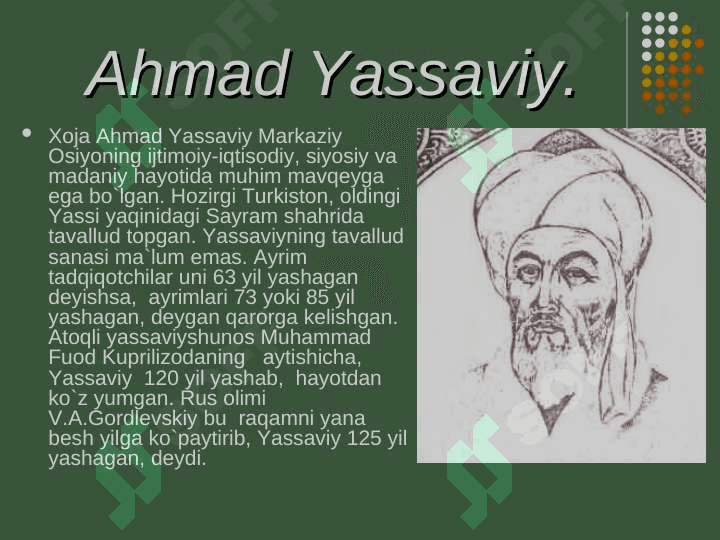 Ahmad Yassaviy.
Xoja Ahmad Yassaviy Markaziy
Osiyoning ijtimoiy-iqtisodiy, siyosiy va
madaniy hayotida muhim mavqeyga
ega bo`lgan. Hozirgi Turkiston, oldingi
Yassi yaqinidagi Sayram shahrida
tavallud topgan. Yassaviyning tavallud
sanasi ma`lum emas. Ayrim
tadqiqotchilar uni 63 yil yashagan
deyishsa,  ayrimlari 73 yoki 85 yil
yashagan, deygan qarorga kelishgan.
Atoqli yassaviyshunos Muhammad
Fuod Kuprilizodaning   aytishicha,
Yassaviy  120 yil yashab,  hayotdan
ko`z yumgan. Rus olimi
V.A.Gordlevskiy bu  raqamni yana
besh yilga ko`paytirib, Yassaviy 125 yil
yashagan, deydi.